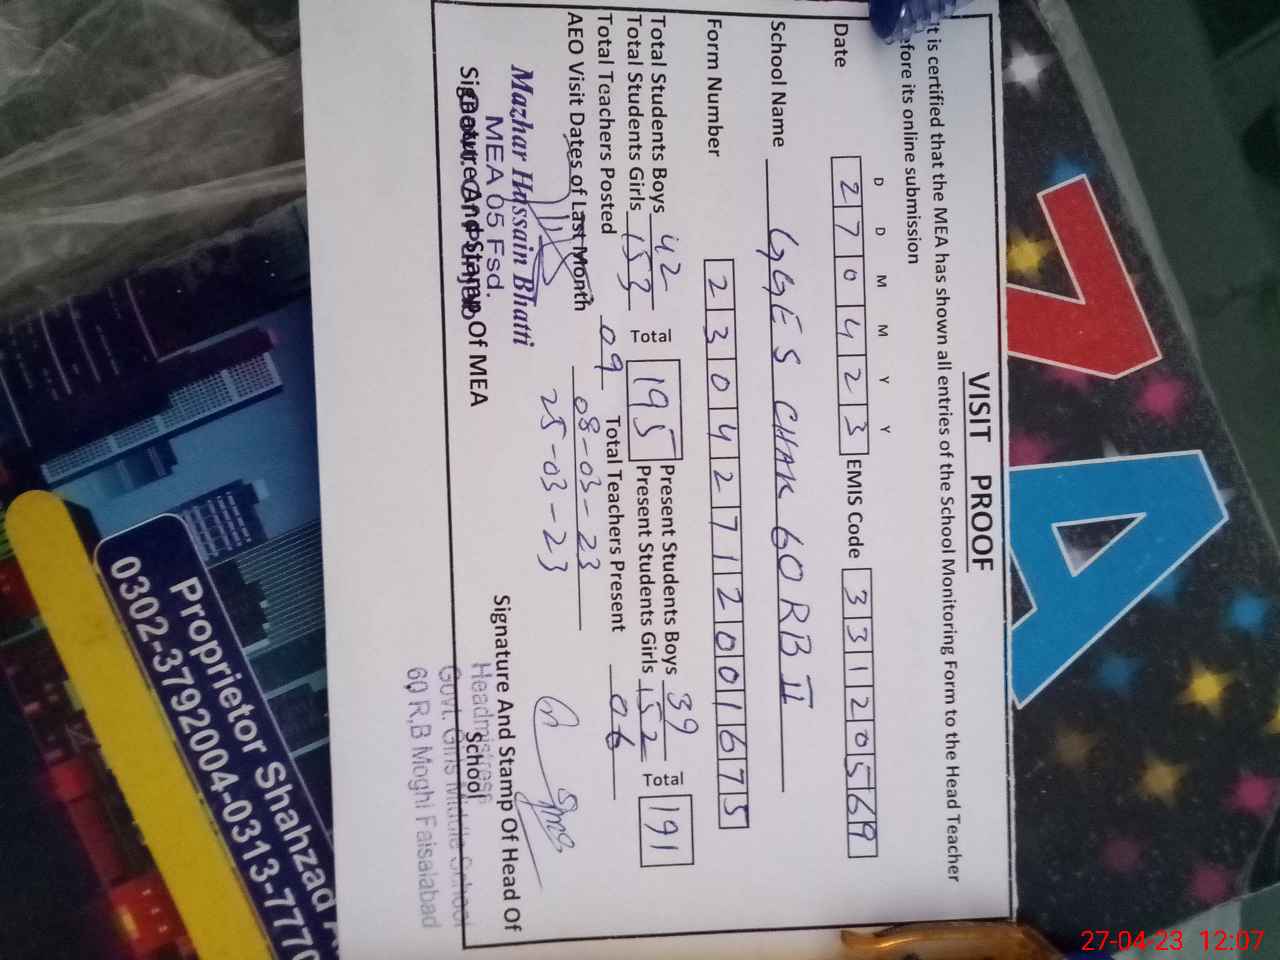 VISIT PROOF
It is certified that the MEA has shown all entries of the School Monitoring Form to the Head Teacher
efore its online submission
D D M M Y Y
Date 270423 EMIS Code 33120569
School Name GGES CHAK 60 RB II
Form Number 2304271200 1675
Total Students Boys 42 Present Students Boys 39
Total Students Girls 153 Total 195 Present Students Girls 152 Total 191
Total Teachers Posted 09 Total Teachers Present 06
AEO Visit Dates of Last Month 08-03-23
25-03-23
Mazhar Hussain Bhatti
MEA 05 Fsd.
Signature And Stamp Of MEA
Signature And Stamp Of Head Of
School
Headmistress
Govt. Girls Middle School
60 R.B Moghi Faisalabad
7A
Proprietor Shahzad A
0302-3792004-0313-7770
27-04-23 12:07